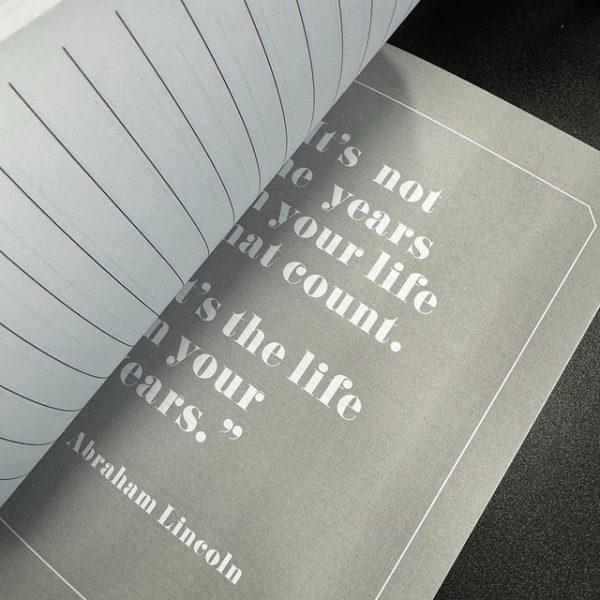 It's not
he years
n your life
hat count.
t's the life
n your
ears.”
Abraham Lincoln